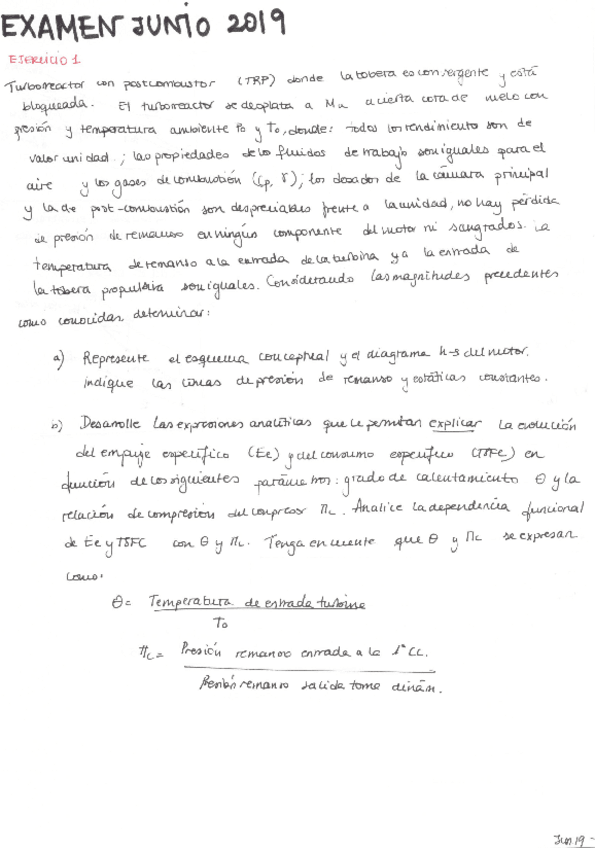 EXAMEN JUNIO 2019
EJERCICIO 1
Turborreactor con postcombustor (TRP) donde la tobera es convergente y está
bloqueada. El turborreactor se desplaza a M∞ a cierta cota de vuelo con
presión y temperatura ambiente P0 y T0, donde: todos los rendimiento son de
valor unidad; las propiedades de los fluidos de trabajo son iguales para el
aire y los gases de combustión (Cp, γ); los dosados de la cámara principal
y la de post-combustión son despreciables frente a la unidad, no hay pérdida
de presión de remanso en ningún componente del motor ni sangrados. La
temperatura de remanso a la entrada de la turbina y a la entrada de
la tobera propulsiva son iguales. Considerando las magnitudes precedentes
como conocidas determinar:
a) Represente el esquema conceptual y el diagrama h-s del motor.
Indique las líneas de presión de remanso y estáticas constantes.
b) Desarrolle las expresiones analíticas que le permitan explicar la evolución
del empuje específico (Ee) y del consumo específico (TSFC) en
función de los siguientes parámetros: grado de calentamiento θ y la
relación de compresión del compresor πc. Analice la dependencia funcional
de Ee y TSFC con θ y πc. Tenga en cuente que θ y πc se expresan
como:
θ = Temperatura de entrada turbina
T0
πc = Presión remanso entrada a la 1ª CC.
Presión remanso salida toma dinám.
Jun 19 -